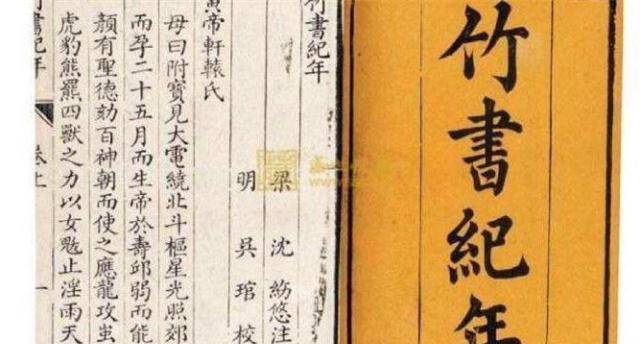 竹書紀年
竹書紀年
梁 沈 注
明 吳 琯 校
黃帝軒轅氏
母曰附寶見大電繞北斗樞星光照郊
而孕二十五月而生帝於壽邱弱而能
顏有聖德劾百神朝而使之應龍攻蚩
虎豹熊羆四獸之力以女魃止淫雨天
竹書紀年 卷上 一